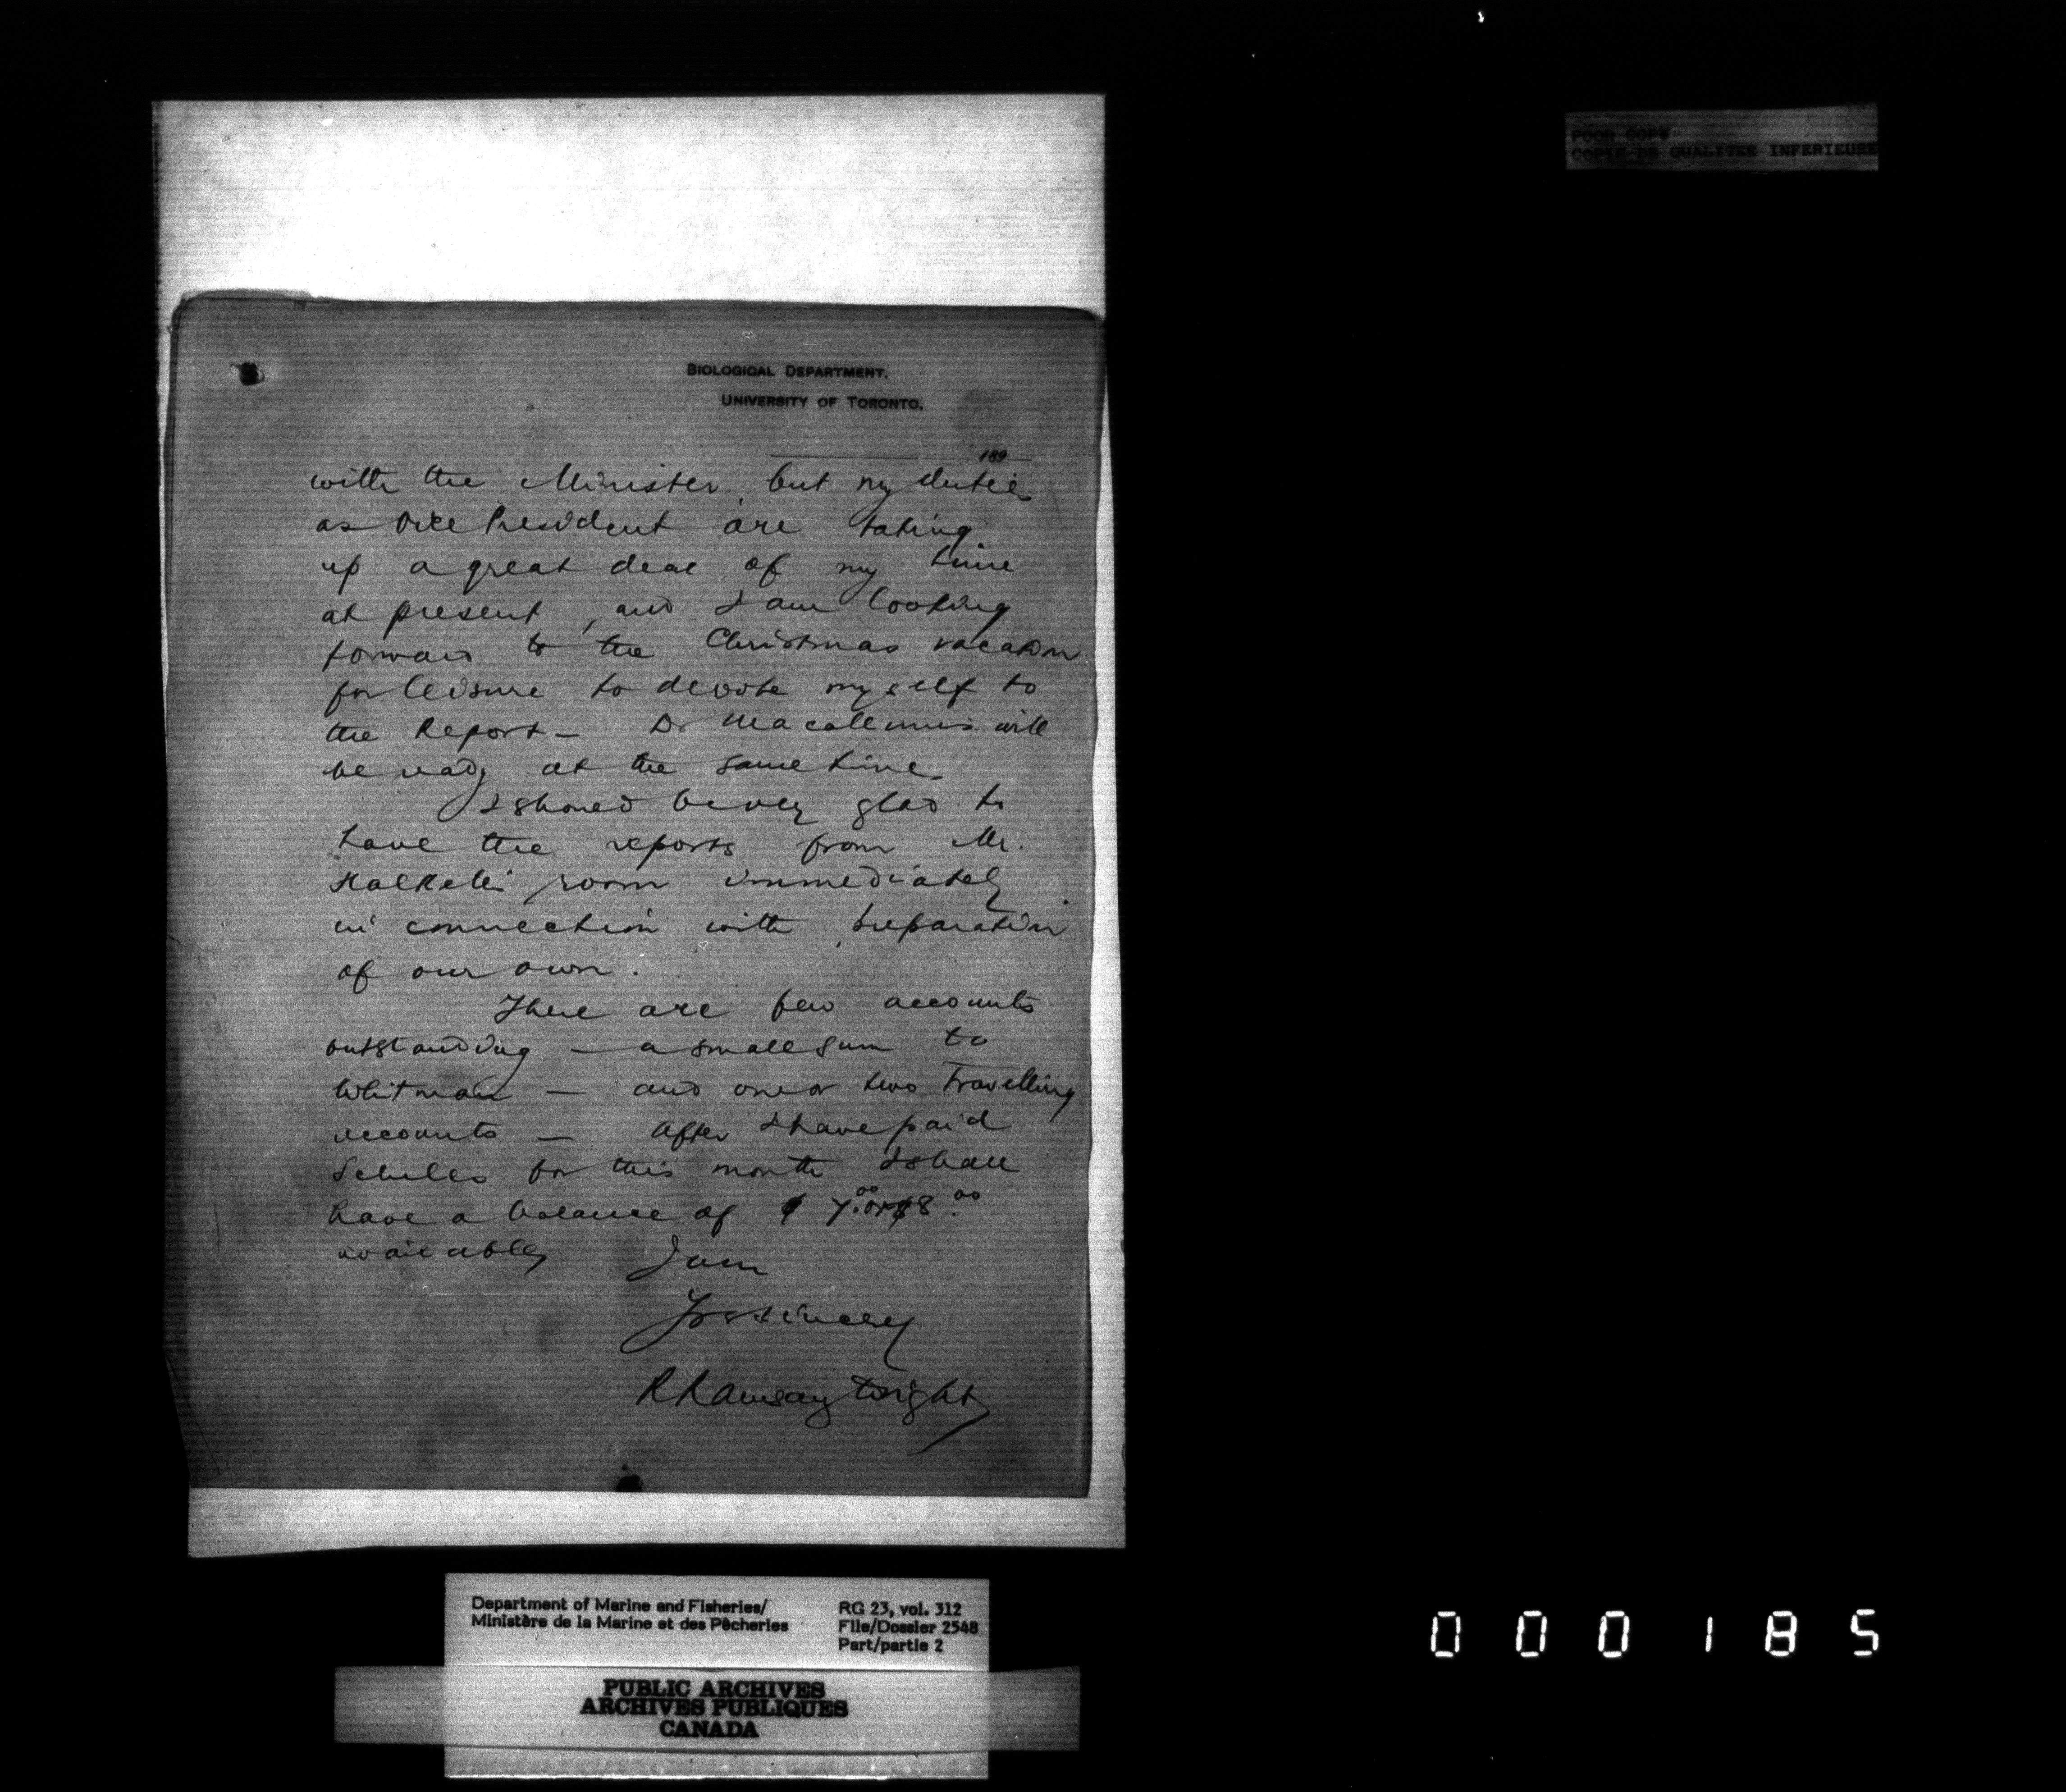 POOR COPY
COPIE DE QUALITEE INFERIEURE
BIOLOGICAL DEPARTMENT,
UNIVERSITY OF TORONTO,
189
with the Minister, but my duties
as Vice President are taking
up a great deal of my time
at present, and I am looking
forward to the Christmas vacation
for leisure to devote myself to
the Report — Dr Macallum's will
be ready at the same time.
I should be very glad to
have the reports from Mr.
Halkett's room immediately
in connection with preparation
of our own.
There are few accounts
outstanding — a small sum to
Whitman — and one or two travelling
accounts — After I have paid
for this month I shall
have a balance of $ 7.00 or $8.00
available
I am
Yrs sincerely
R Ramsay Wright
Department of Marine and Fisheries/
Ministère de la Marine et des Pêcheries
RG 23, vol. 312
File/Dossier 2548
Part/partie 2
PUBLIC ARCHIVES
ARCHIVES PUBLIQUES
CANADA
000185